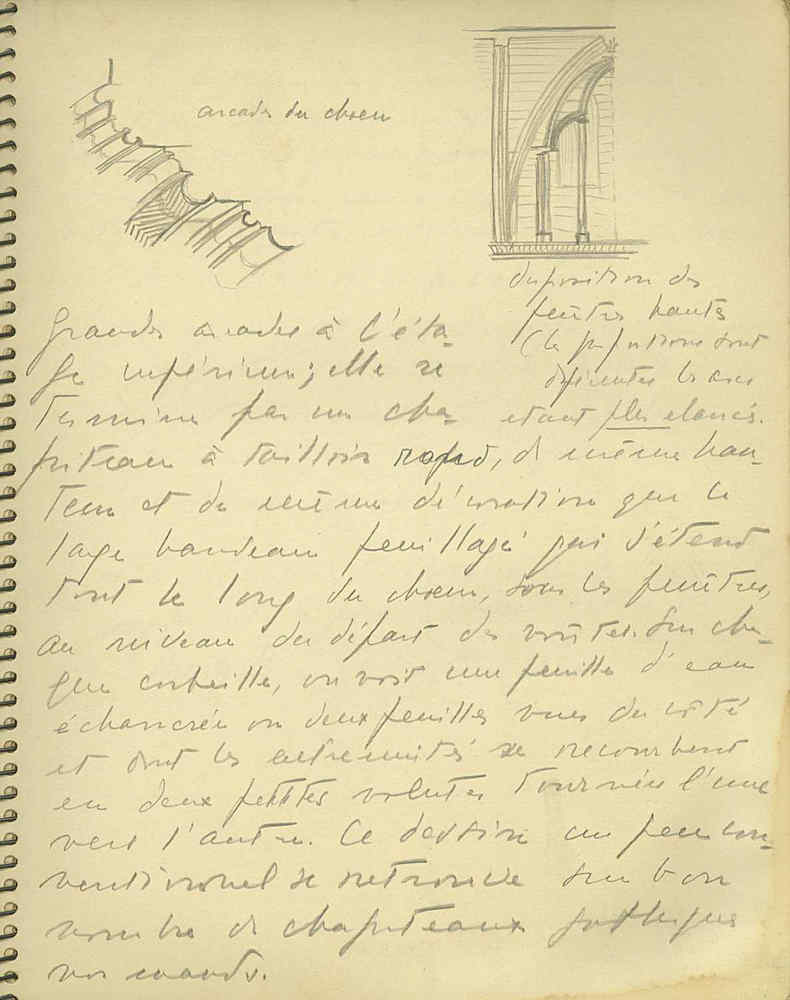 arcades du choeur
disposition des
fenêtres hautes
(les proportions sont
différentes les arcs
étant plus élancés.
grandes arcades à l'éta-
ge inférieur; elle se
termine par un cha-
piteau à tailloir rond, de même hau-
teur et de même décoration que le
large bandeau feuillagé qui s'étend
tout le long du choeur, sous les fenêtres,
au niveau du départ des voûtes. Sur cha-
que corbeille, on voit une feuille d'eau
échancrée ou deux feuilles vues de côté
et dont les extrémités se recourbent
en deux petites volutes tournées l'une
vers l'autre. Ce dessin un peu con-
ventionnel se retrouve sur bon
nombre de chapiteaux gothiques
normands.